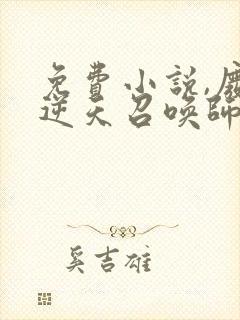 免費小說,
逆天召喚師
奚吉雄